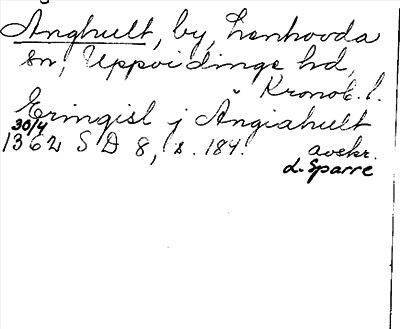 Anghult, by, Lenhovda
sn, Uppvidinge hd,
Kronob. l.
Eringisl j Ängiahult
30/4
1362 SD 8, s. 184. avskr.
d. Sparre